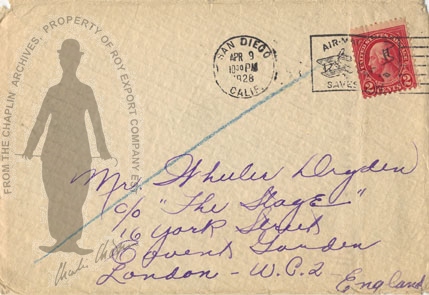 FROM THE CHAPLIN ARCHIVES. PROPERTY OF ROY EXPORT COMPANY EST.
SAN DIEGO
APR 9
PM
1928
CALIF.
AIR-M
SAVES
2 2
Mr. Wheeler Dryden
c/o "The Stage"
16 York Street
Covent Garden
London - W.C.2
England
Charlie Chaplin